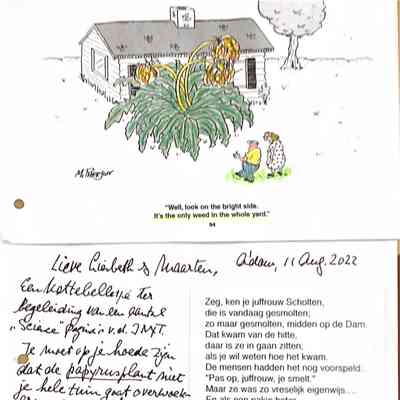 "Well, look on the bright side.
It's the only weed in the whole yard."
94
Lieve Liesbeth & Maarten, A'dam, 11 Aug. 2022
Een kattebelletje ter
begeleiding van een aantal
"Science" pagina's v.d. INYT.
Je moet op je hoede zijn
dat de papyrusplant niet
je hele tuin gaat overwoek-
Zeg, ken je juffrouw Scholten,
die is vandaag gesmolten;
zo maar gesmolten, midden op de Dam.
Dat kwam van de hitte,
daar is ze in gaan zitten;
als je wil weten hoe het kwam.
De mensen hadden het nog voorspeld..
"Pas op, juffrouw, je smelt."
Maar ze was zo vreselijk eigenwijs....